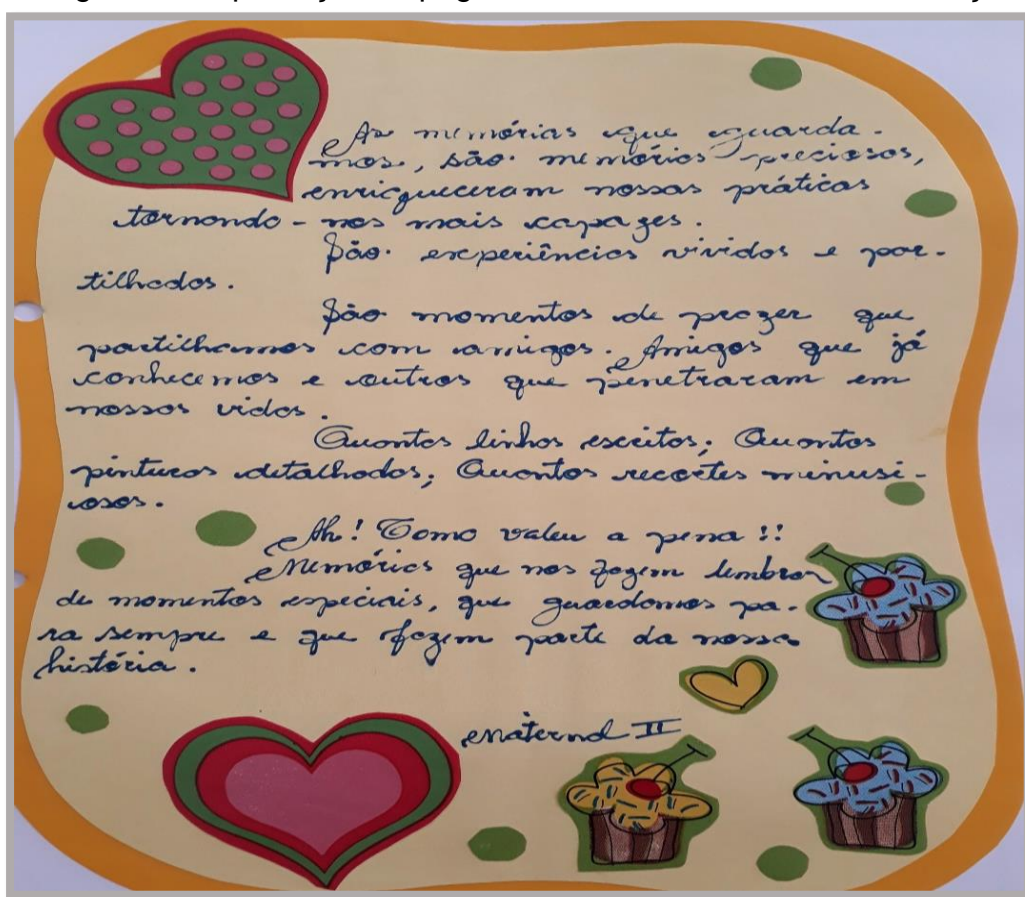 As memórias que guarda-
mos, são memórias preciosas,
enriqueceram nossas práticas
tornando-nos mais capazes.
São experiências vividas e par-
tilhadas.
São momentos de prazer que
partilhamos com amigos. Amigos que já
conhecemos e outros que penetraram em
nossas vidas.
Quantas linhas escritas; Quantas
pinturas detalhadas; Quantos recortes minusi-
osos.
Ah! Como valeu a pena!!
Memórias que nos fazem lembrar
de momentos especiais, que guardamos pa-
ra sempre e que fazem parte da nossa
história.
Maternal II